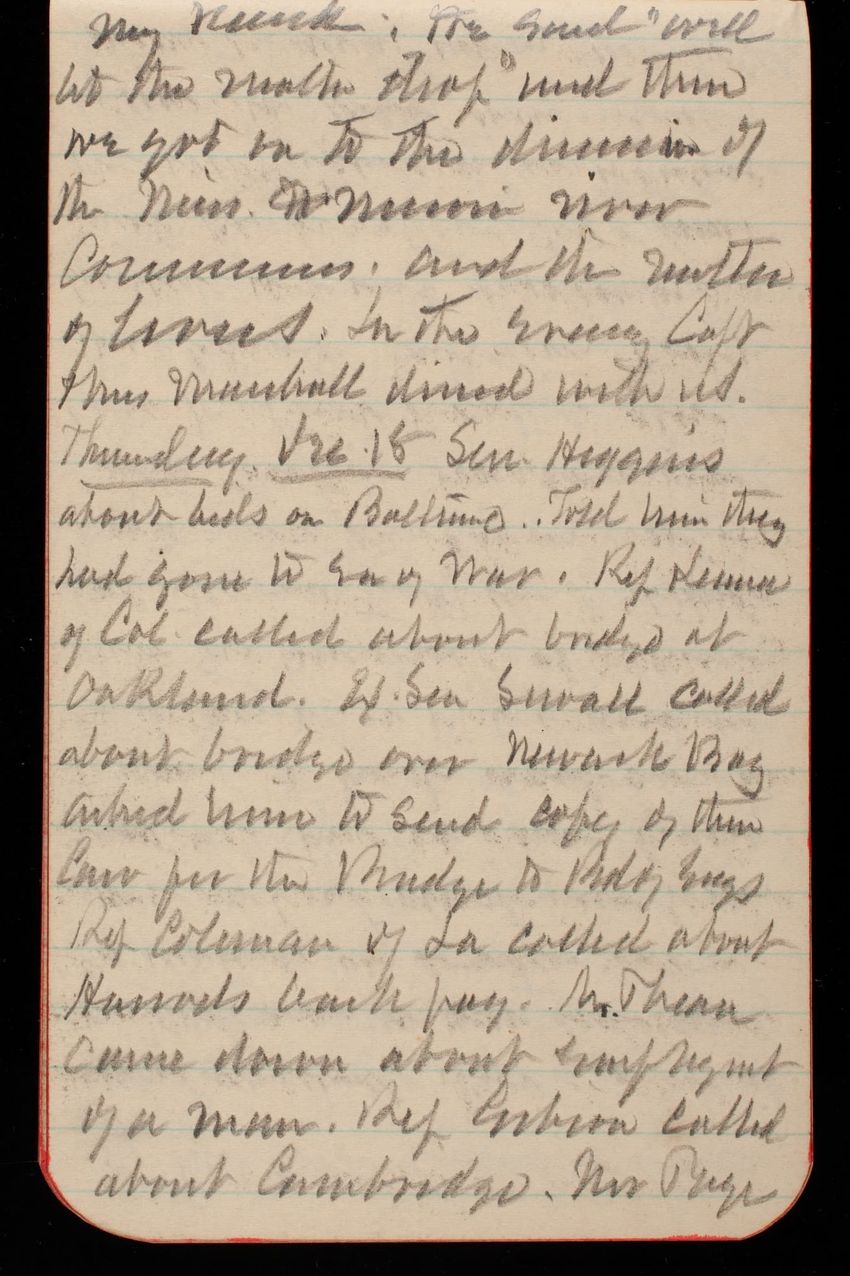 my neck. He said "well
let the matter drop" and then
we got on to the discussion of
the Miss. & Missouri river
Commissions. and the matter
of Levees. In the evening Capt
Thos Marshall dined with us.
Thursday Dec. 18 Sen. Higgins
about beds on Baltimore.. Told him they
had gone to Sec of War. Rep
of Col called about bridge at
Oakland. Ex. Sen Sewall called
about bridge over Newark Bay
asked him to send copy of the
Law for the Bridge to Bd of Engs
Rep Coleman of La called about
Harrods back pay. Mr.
came down about
of a man. Rep called
about Cambridge. Mr Page